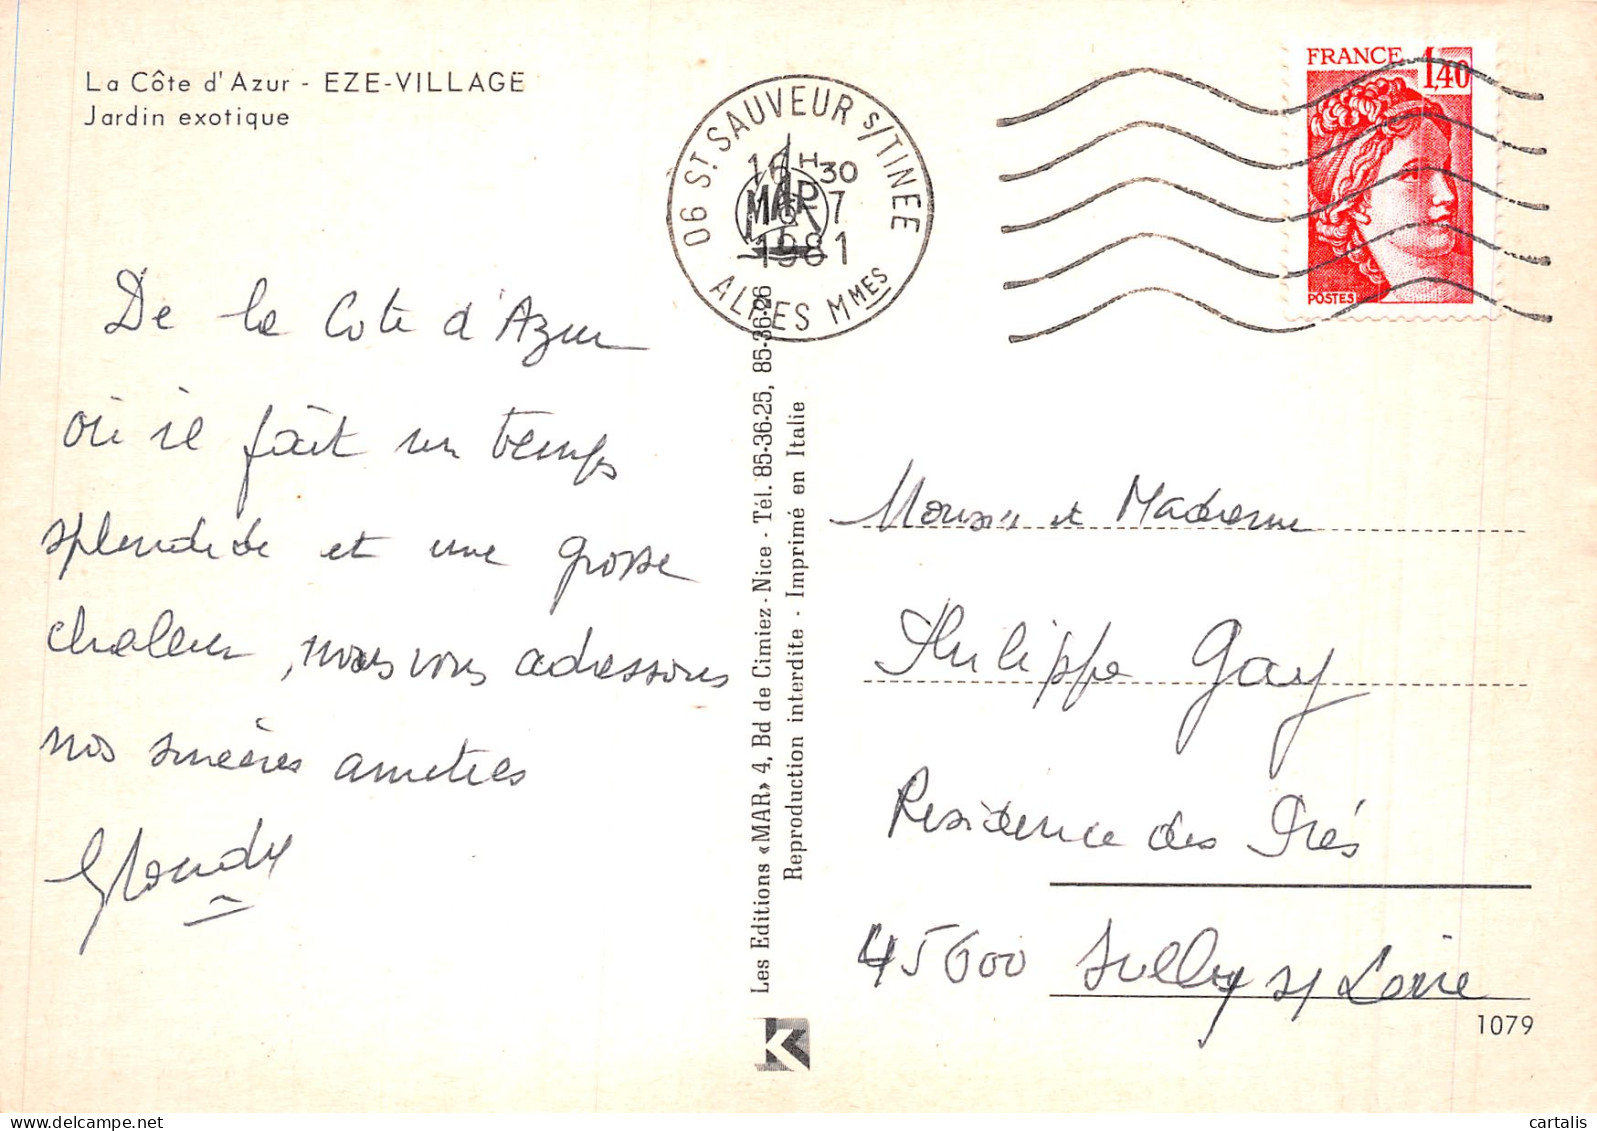 La Côte d'Azur - EZE-VILLAGE
Jardin exotique
06 ST SAUVEUR S/TINEE
16 H 30
7
1981
ALPES MMES
FRANCE 1,40
POSTES
De la Cote d'Azur
où il fait un temps
splendide et une grosse
chaleur, nous vous adressons
nos sincères amitiés
Les Editions «MAR» 4, Bd de Cimiez - Nice - Tél. 85-36-25, 85-36-26
Reproduction interdite - Imprimé en Italie
MAR
K
Monsieur et Madame
Philippe Gay
Residence des Prés
45600 Sully s/ Loire
1079
cartalis